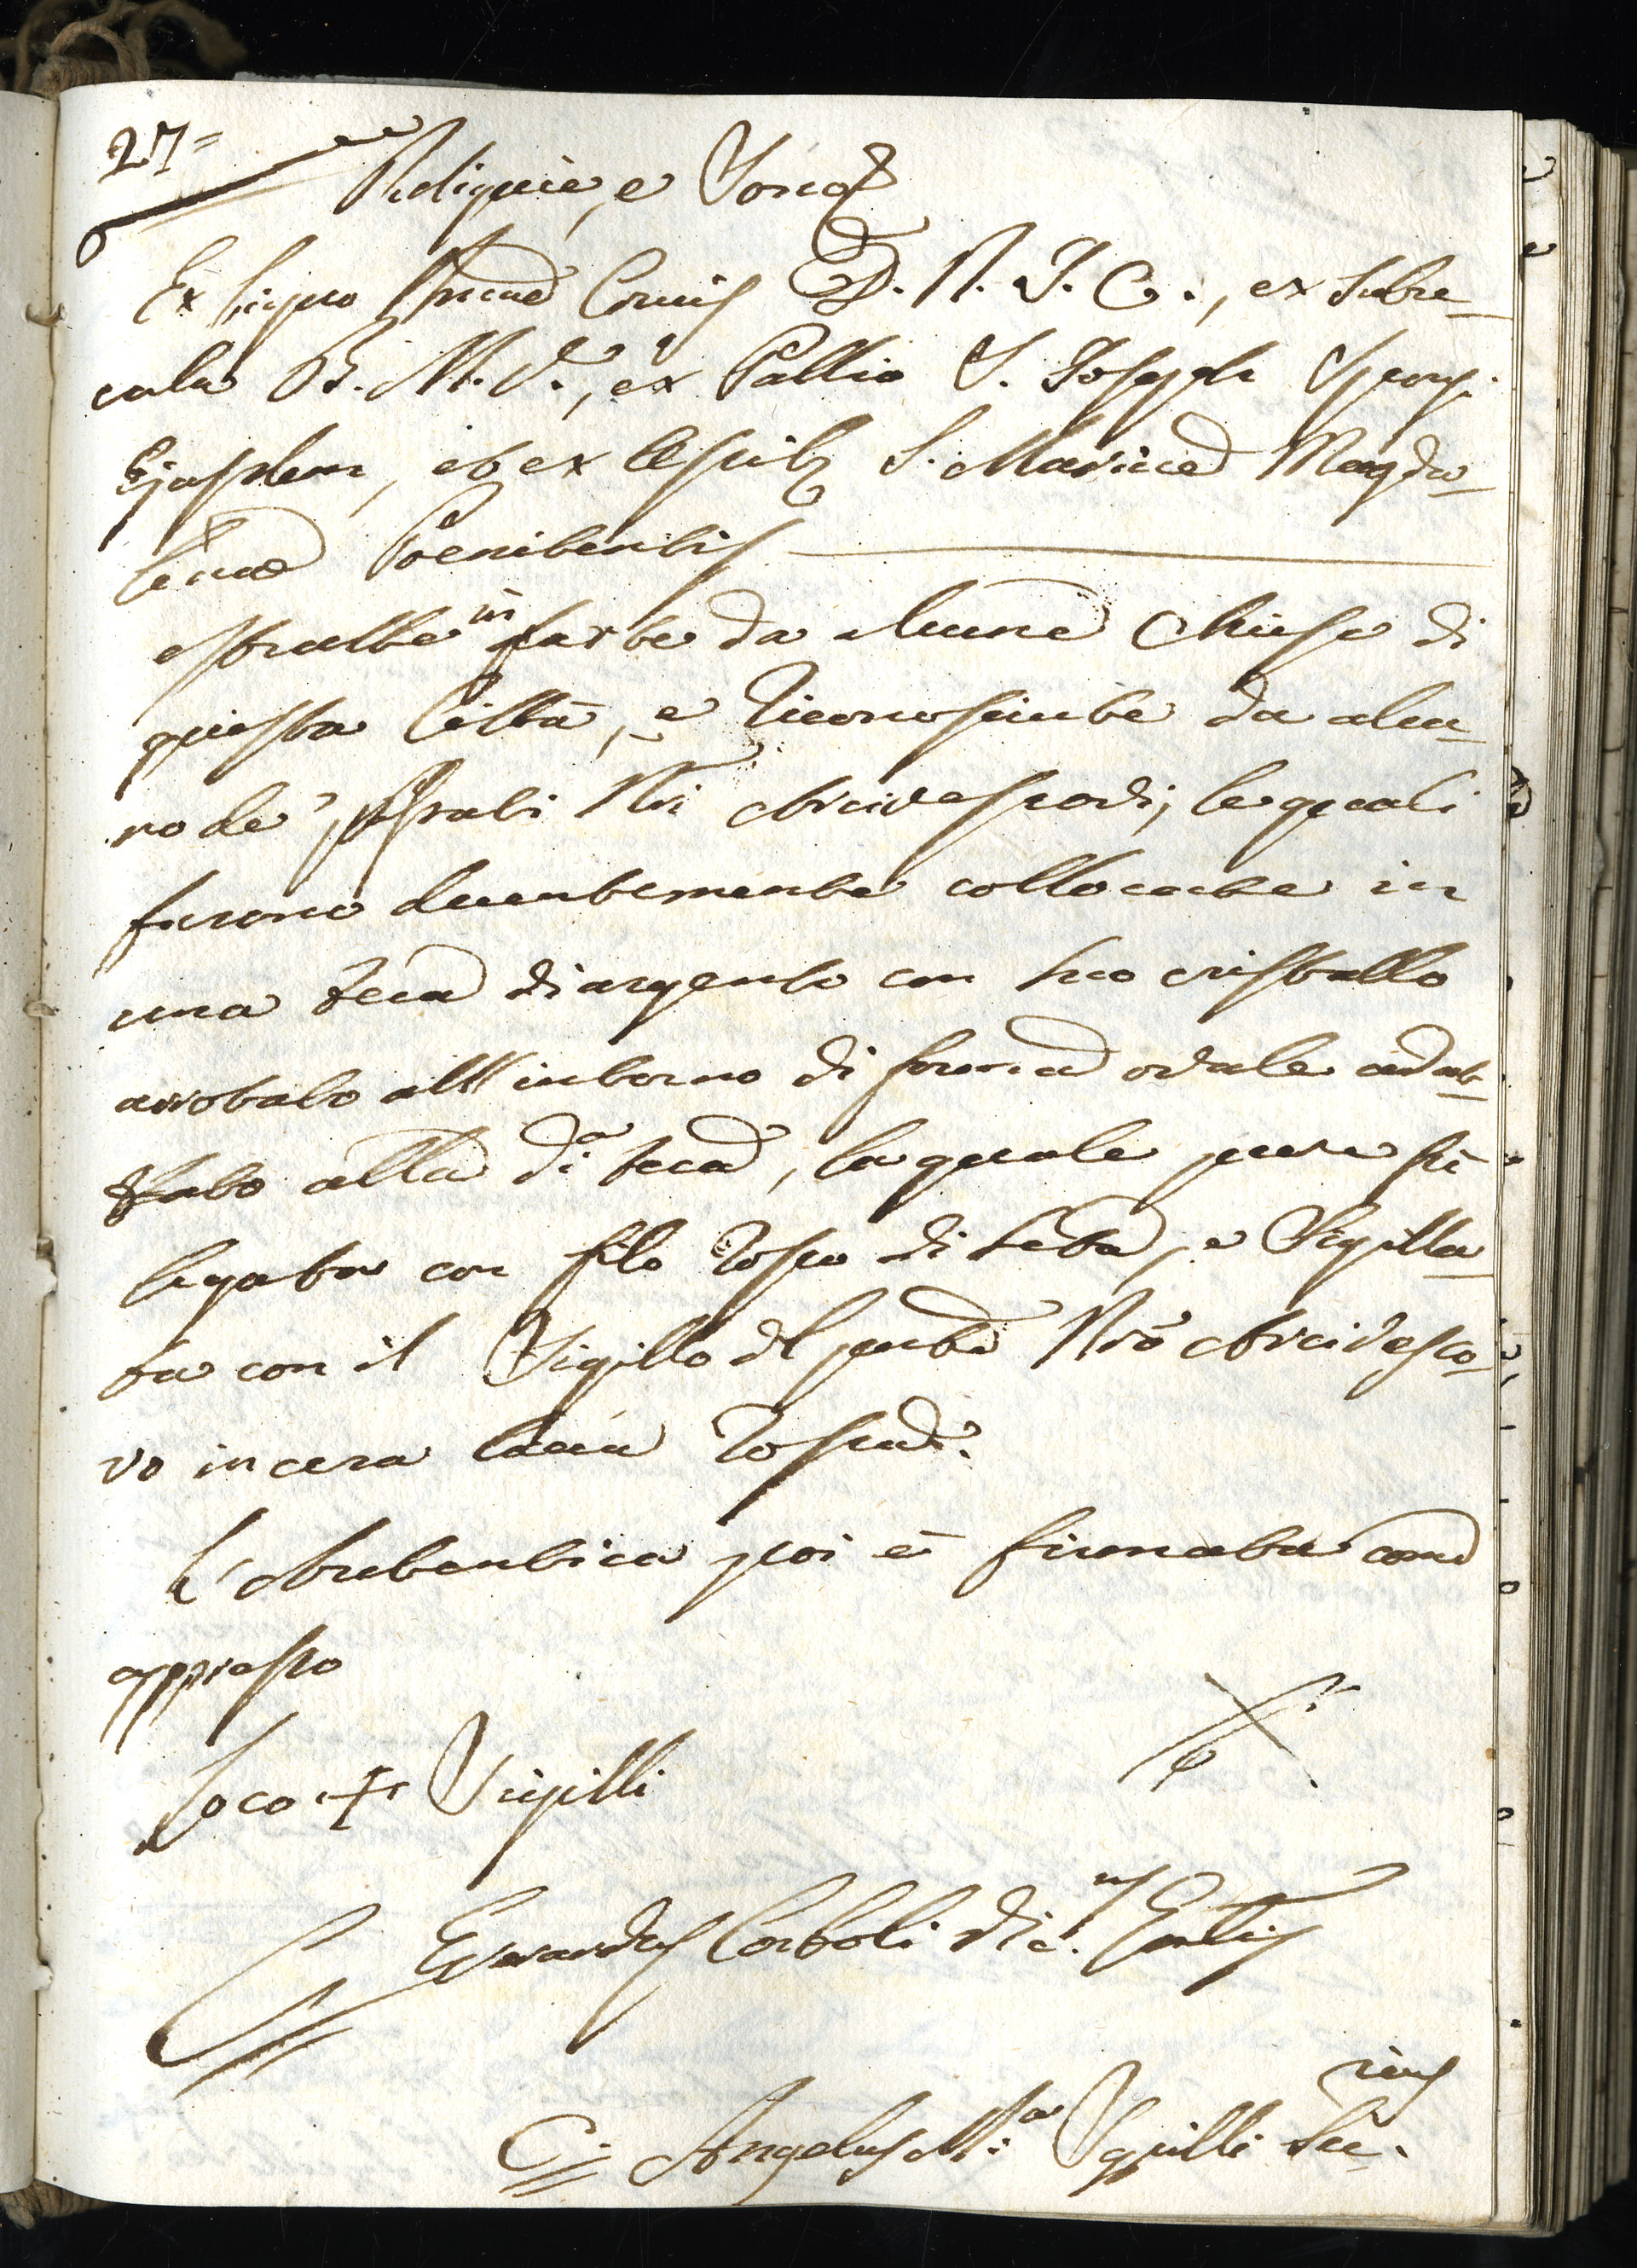 27=
Reliquie, e sono
Ex Ligno Smae Crucis D. N. J. C., ex Subu-
cula B. M. V., ex Pallio S. Joseph Sponsi
Ejusdem, et ex S. Mariae Magda-
lenae Poenitentis
estratte in parte da alcune Chiese di
questa Città, e riconosciute da alcu-
no de' passati Nri Arcivescovi, le quali
furono decentemente collocate in
una teca di argento con suo cristallo
arrotato all'intorno di forma ovale adat-
tato alla da teca, la quale pure fù
legata con filo rosso di seta, e sigilla-
ta con il Sigillo del Nro Arcivesco-
vo in cera lacca rossa.
L'Autentica poi è firmata come
appresso
Loco + Sigilli
Everardus Corboli Vic.us Gnlis
C. Angelus M.a Squilli